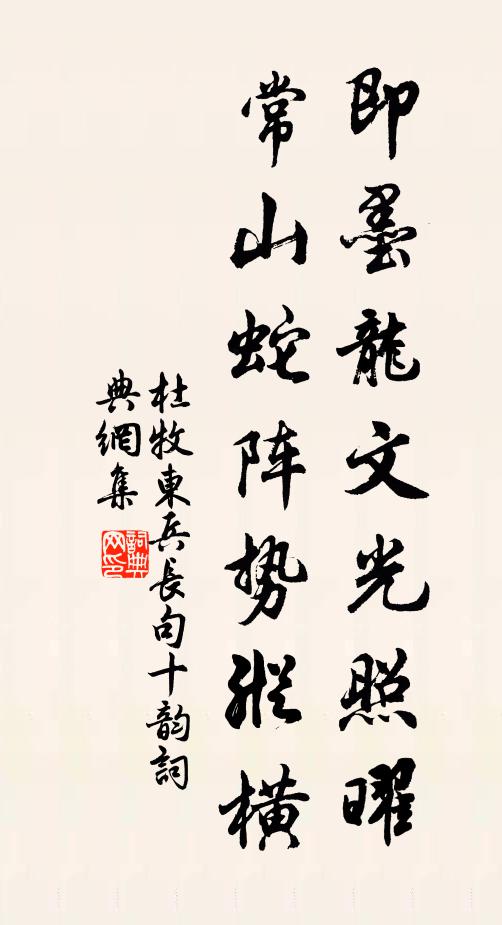 即墨龍文光照曜
常山蛇阵势縱橫
杜牧東兵長句十韵詞
典網集
詞典
网印